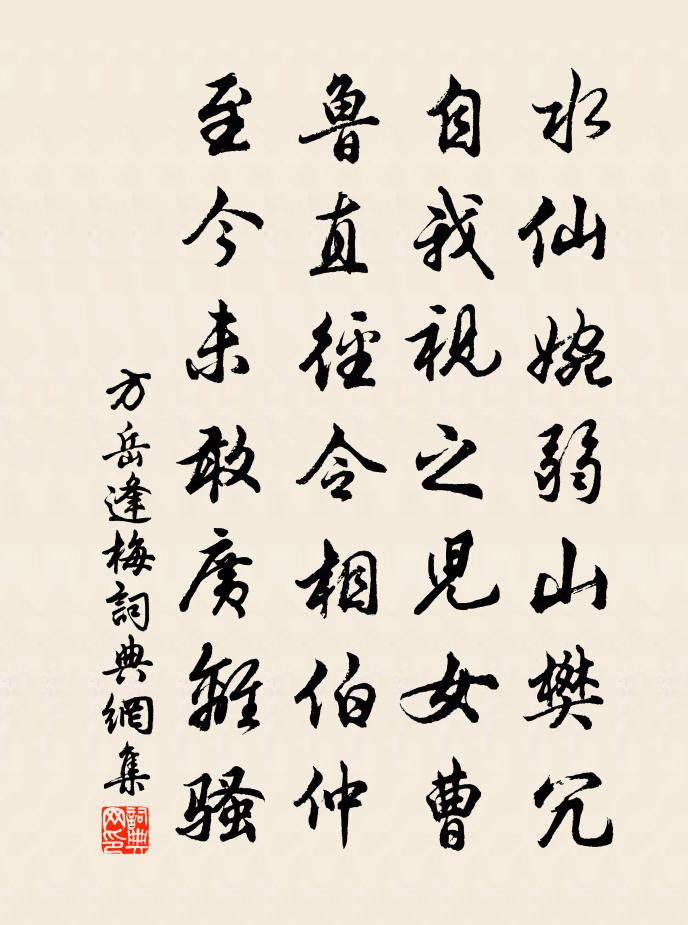 水仙婉弱山樊冗
自我視之児女曹
魯直徑令相伯仲
至今未敢廣離騷
方岳逢梅詞典網集
詞典网印